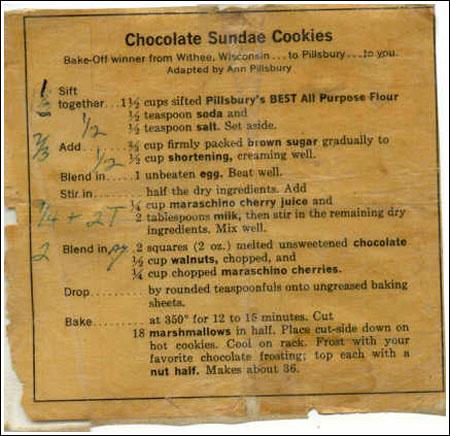 Chocolate Sundae Cookies
Bake-Off winner from Withee, Wisconsin ... to Pillsbury ... to you.
Adapted by Ann Pillsbury
Sift
together... 1½ cups sifted Pillsbury's BEST All Purpose Flour
½ teaspoon soda and
1/2 ½ teaspoon salt. Set aside.
2/3 Add........ ⅔ cup firmly packed brown sugar gradually to
1/2 ½ cup shortening, creaming well.
Blend in..... 1 unbeaten egg. Beat well.
Stir in........ half the dry ingredients. Add
¼ cup maraschino cherry juice and
1/4 + 2T 2 tablespoons milk, then stir in the remaining dry
ingredients. Mix well.
2 Blend in 2 squares (2 oz.) melted unsweetened chocolate
½ cup walnuts, chopped, and
¼ cup chopped maraschino cherries.
Drop........ by rounded teaspoonfuls onto ungreased baking
sheets.
Bake........ at 350° for 12 to 15 minutes. Cut
18 marshmallows in half. Place cut-side down on
hot cookies. Cool on rack. Frost with your
favorite chocolate frosting; top each with a
nut half. Makes about 36.